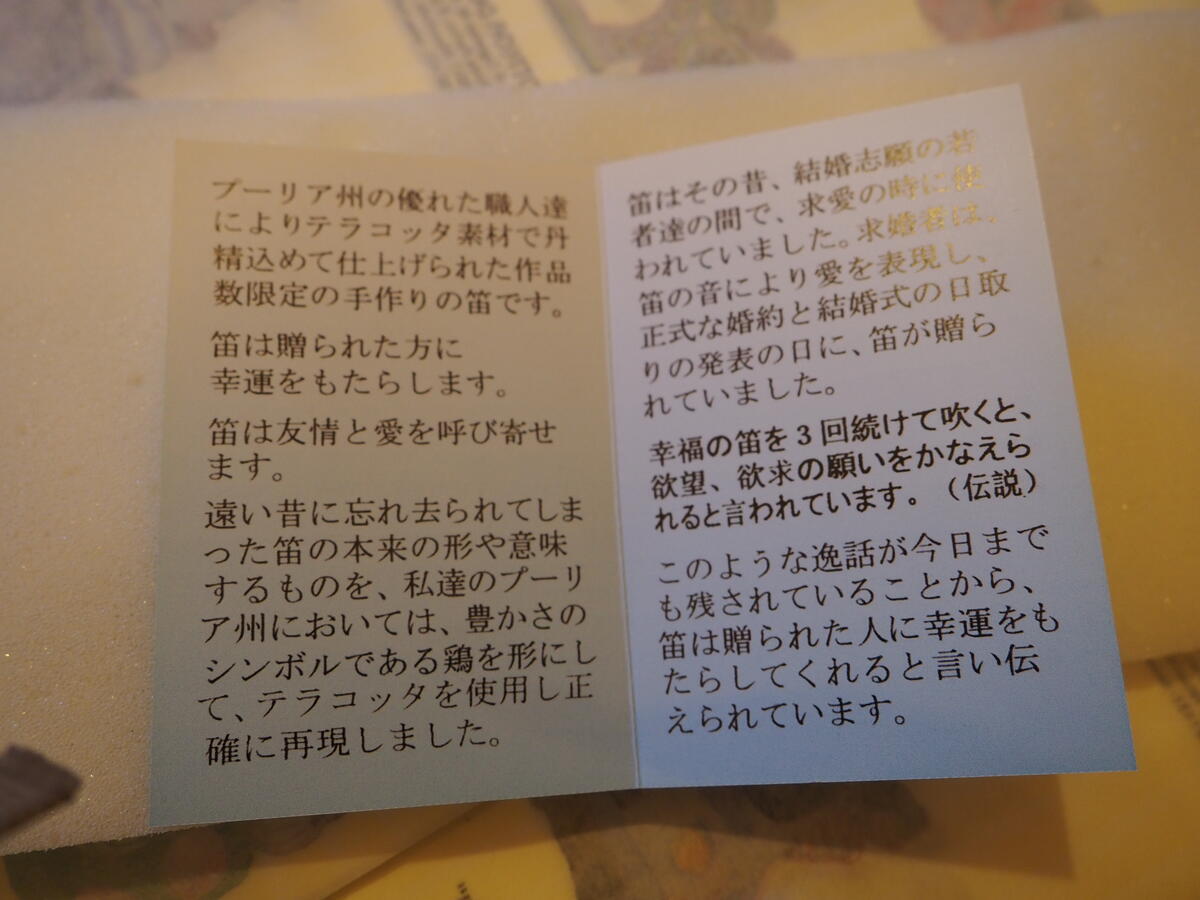 プーリア州の優れた職人達
によりテラコッタ素材で丹
精込めて仕上げられた作品
数限定の手作りの笛です。
笛は贈られた方に
幸運をもたらします。
笛は友情と愛を呼び寄せ
ます。
遠い昔に忘れ去られてしま
った笛の本来の形や意味
するものを、私達のプーリ
ア州においては、豊かさの
シンボルである鶏を形にし
て、テラコッタを使用し正
確に再現しました。
笛はその昔、結婚志願の若
者達の間で、求愛の時に使
われていました。求婚者は、
笛の音により愛を表現し、
正式な婚約と結婚式の日取
りの発表の日に、笛が贈ら
れていました。
幸福の笛を3回続けて吹くと、
欲望、欲求の願いをかなえら
れると言われています。（伝説）
このような逸話が今日まで
も残されていることから、
笛は贈られた人に幸運をも
たらしてくれると言い伝
えられています。